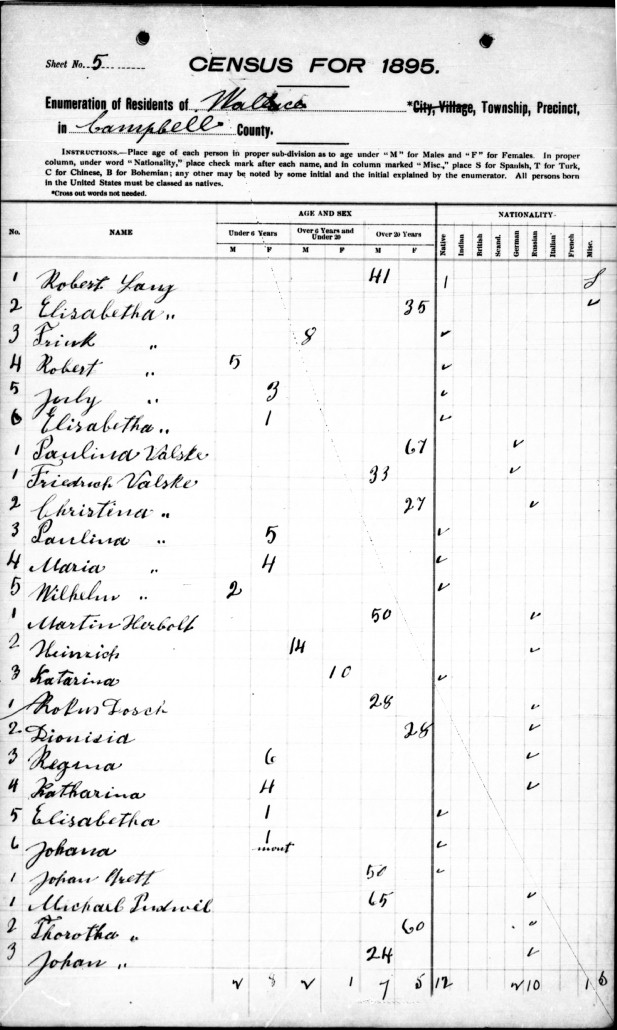 Sheet No. 5
CENSUS FOR 1895.
Enumeration of Residents of *City, Village, Township, Precinct,
in Campbell County.
INSTRUCTIONS.—Place age of each person in proper sub-division as to age under "M" for Males and "F" for Females. In proper
column, under word "Nationality," place check mark after each name, and in column marked "Misc.," place S for Spanish, T for Turk,
C for Chinese, B for Bohemian; any other may be noted by some initial and the initial explained by the enumerator. All persons born
in the United States must be classed as natives.
*Cross out words not needed.
AGE AND SEX NATIONALITY
No. NAME Under 6 Years Over 6 Years and Under 20 Over 20 Years Native Indian British Scand. German Russian Italian French Misc.
M F M F M F
1 Robert 41 1
2 Elisabetha " 35 ✓
3 " 8 ✓
4 Robert " 5 ✓
5 July " 3 ✓
6 Elisabetha " 1 ✓
1 Paulina Valske 67 ✓
1 Friedrich Valske 33 ✓
2 Christina " 27 ✓
3 Paulina " 5 ✓
4 Maria " 4 ✓
5 Wilhelm " 2 ✓
1 Martin Herbolt 50 ✓
2 Heinrich 14 ✓
3 Katarina 10 ✓
1 Rokus Dosch 28 ✓
2 Dionisia 28 ✓
3 Regina 6 ✓
4 Katharina 4 ✓
5 Elisabetha 1 ✓
6 Johana 1 mont ✓
1 Johan 50 ✓
1 Michael 65 ✓
2 Thorotha " 60 ✓
3 Johan " 24 ✓
2 8 2 1 7 5 12 2 10 1